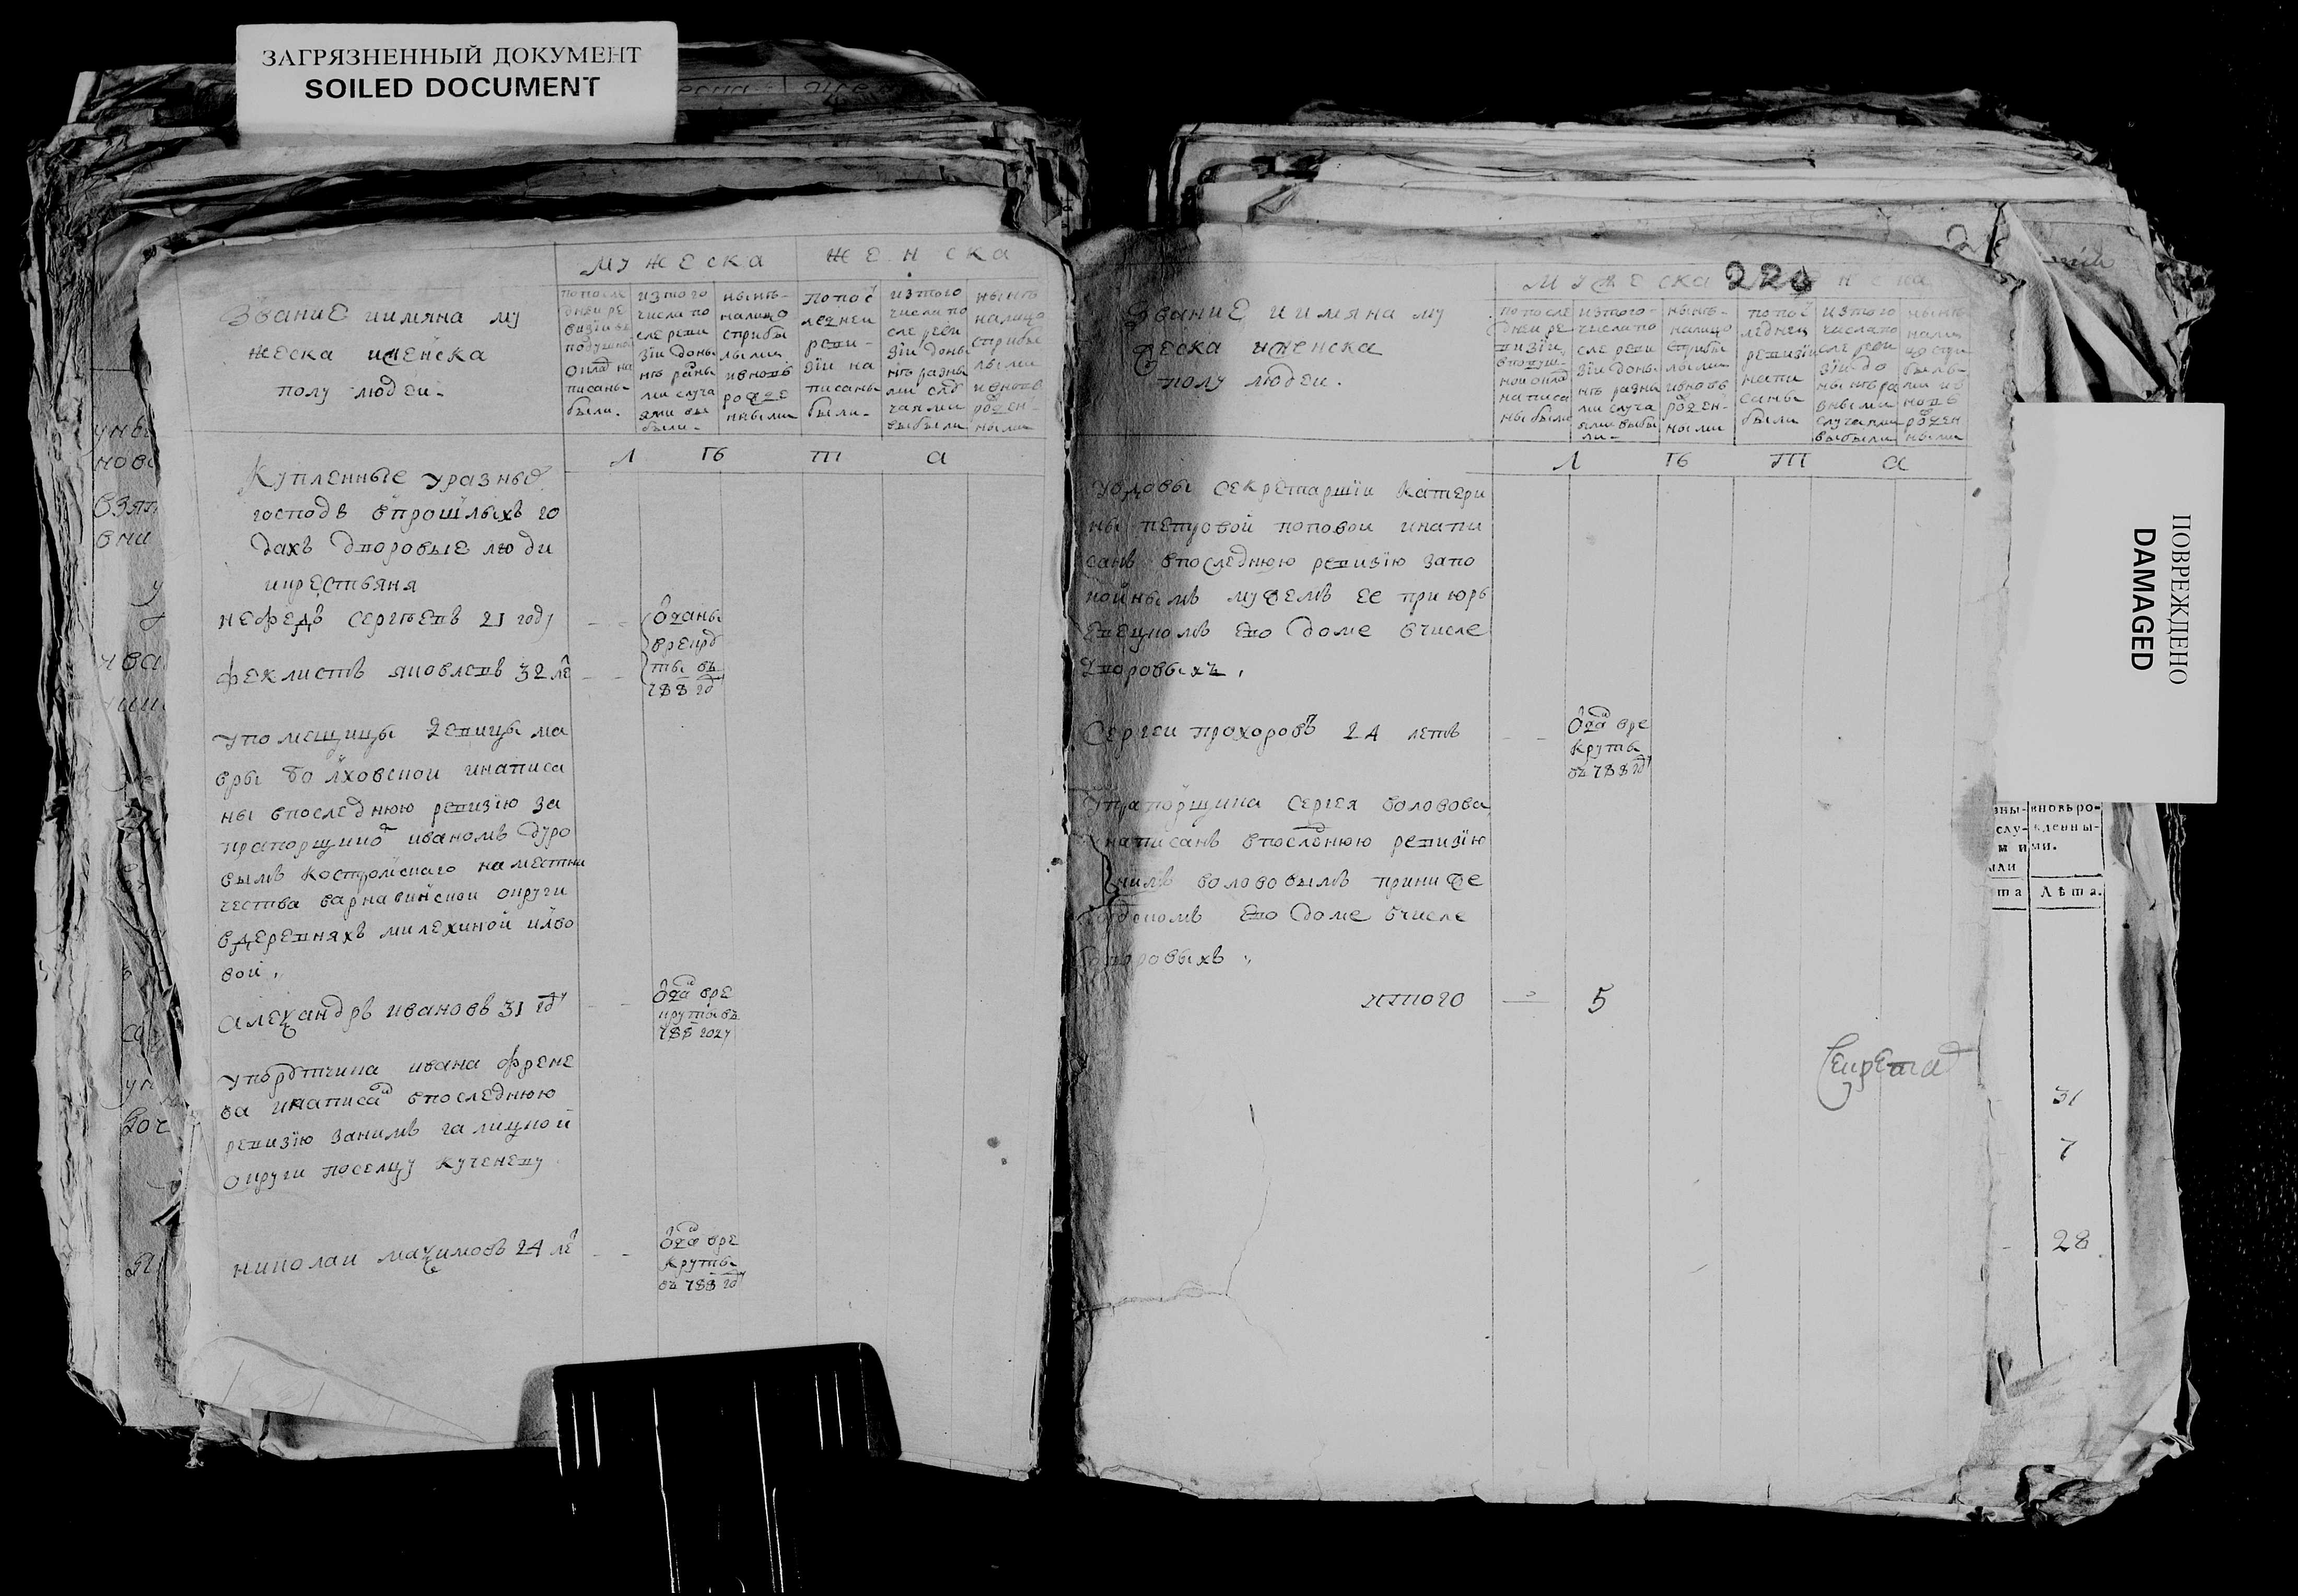 ЗАГРЯЗНЕННЫЙ ДОКУМЕНТ
SOILED DOCUMENT
мужеска женска
Звание иимяна му
жеска иженска
полу людеи.
попосле
днеи ре
визїи в
подушно
окладъ на
писаны
были.
изтого
числа по
сле реви
зїи доны
нѣ разны
ми случа
ями вы
были.
нынѣ
налицо
сприбы
лыми
ивновь
рожде
ными
попос
леднеи
реви-
зїи на
писаны
были.
изтого
числа по
сле реви
зїи доны
нѣ разны
ми слу
чаями
выбыли
нынѣ
налицо
сприбы
лыми
ивновь
рожден
ными
Л Ѣ Т А
Купленные уразныхъ
господъ впрошлыхъ го
дахъ дворовые люди
икрестьяня
нефедъ сергѣевъ 21 году
отданы
врекру
ты въ
788 год
феклистъ яковлевъ 32 ле
упомещицы девицы ма
вры болховскои инаписа
ны впоследнюю ревизїю за
прапорщико иваномъ дуро
вымъ костромскаго наместни
чества варнавинской округи
вдеревняхъ милехиной ильво
вой.
александръ ивановъ 31 году
отда вре
круты въ
788 году
ивана френе
ва инаписа впоследнюю
ревизїю занимъ галицкой
округи поселцу кученеву
николаи маѯимовъ 24 ле
отда вре
круты
въ 788 год
220
мужеска
Звание иимяна му
жеска иженска
полу людеи.
попосле
днеи ре
визїи
вподуш-
нои окла
написа
ны были
изтого-
числа по
сле реви
зїи доны
нѣ разны
ми случа
ями выбы
ли-
нынѣ-
налицо
сприбы
лыми
ивновь
рожден-
ными
попос
леднеи
ревизїи
напи
саны
были
изтого
числапо
сле реви
зїи до
нынѣ ра
зными
случаями
выбыли
нынѣ
налиц
цо спри
былы-
ми ив
новь
рожден
ными
Л Ѣ Т А
увдовы секретаршїи катери
ны петровой поповои инапи
санъ впоследнюю ревизїю запо
койнымъ мужемъ ее при юрь
евецкомъ ево доме вчисле
дворовыхъ.
Сергеи прохоровъ 24 летъ
отда вре
круты
въ 788 год
упрапорщика сергея волохова
инаписанъ впоследнюю ревизїю
волоховымъ приниже
ево доме вчисле
дворовыхъ
итого 5
Секрета
ПОВРЕЖДЕНО
DAMAGED
вновьро-
жденны-
ми.
Лѣта.
31
7
28